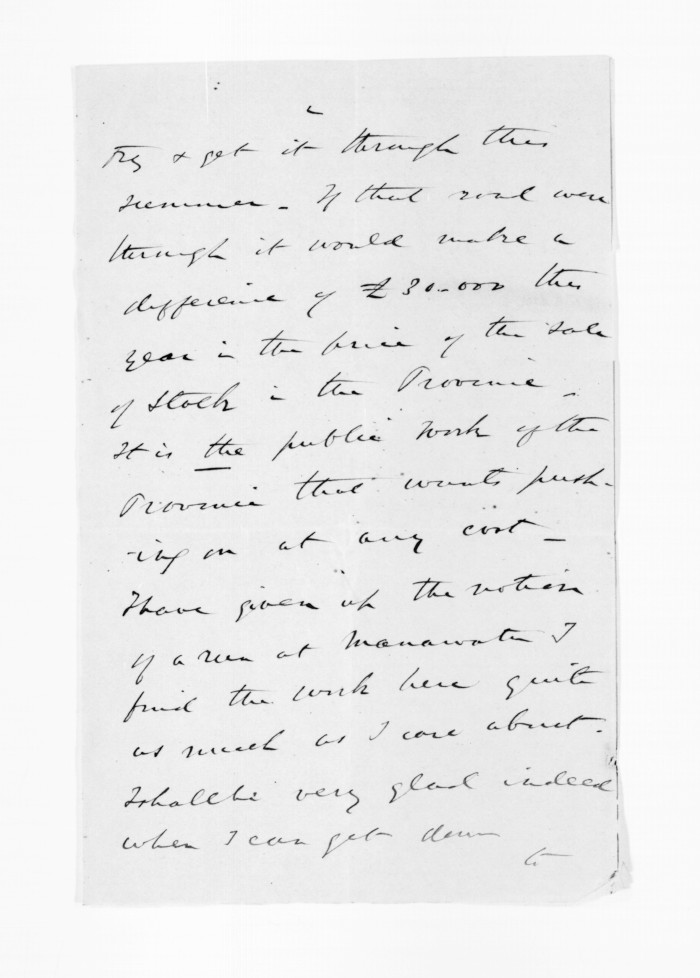 try & get it through this
summer - If that road were
through it would make a
difference of £30.000 this
year in the price of the sale
of stock in the Province.
It is the public work of the
Province that wants push-
-ing on at any cost -
I have given up the notion
of a run at Manawatu I
find the work here quite
as much as I care about.
I shall be very glad indeed
when I can get down
to